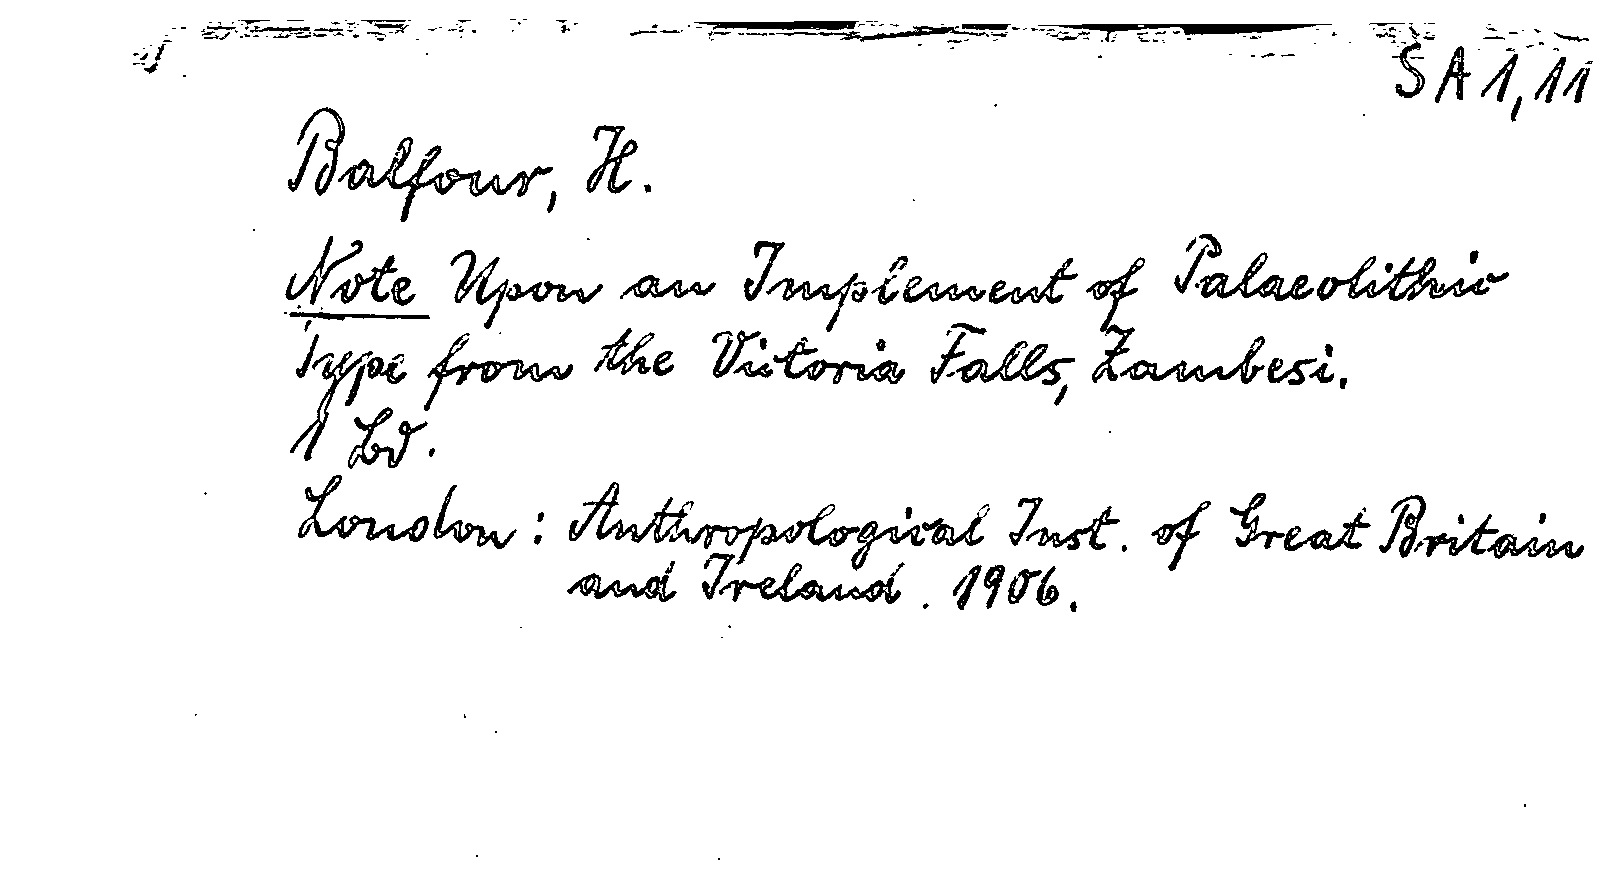 SA 1,11
Balfour, H.
Note Upon an Implement of Palaeolithic
Type from the Victoria Falls, Zambesi.
1 Bd.
London: Anthropological Inst. of Great Britain
and Ireland. 1906.